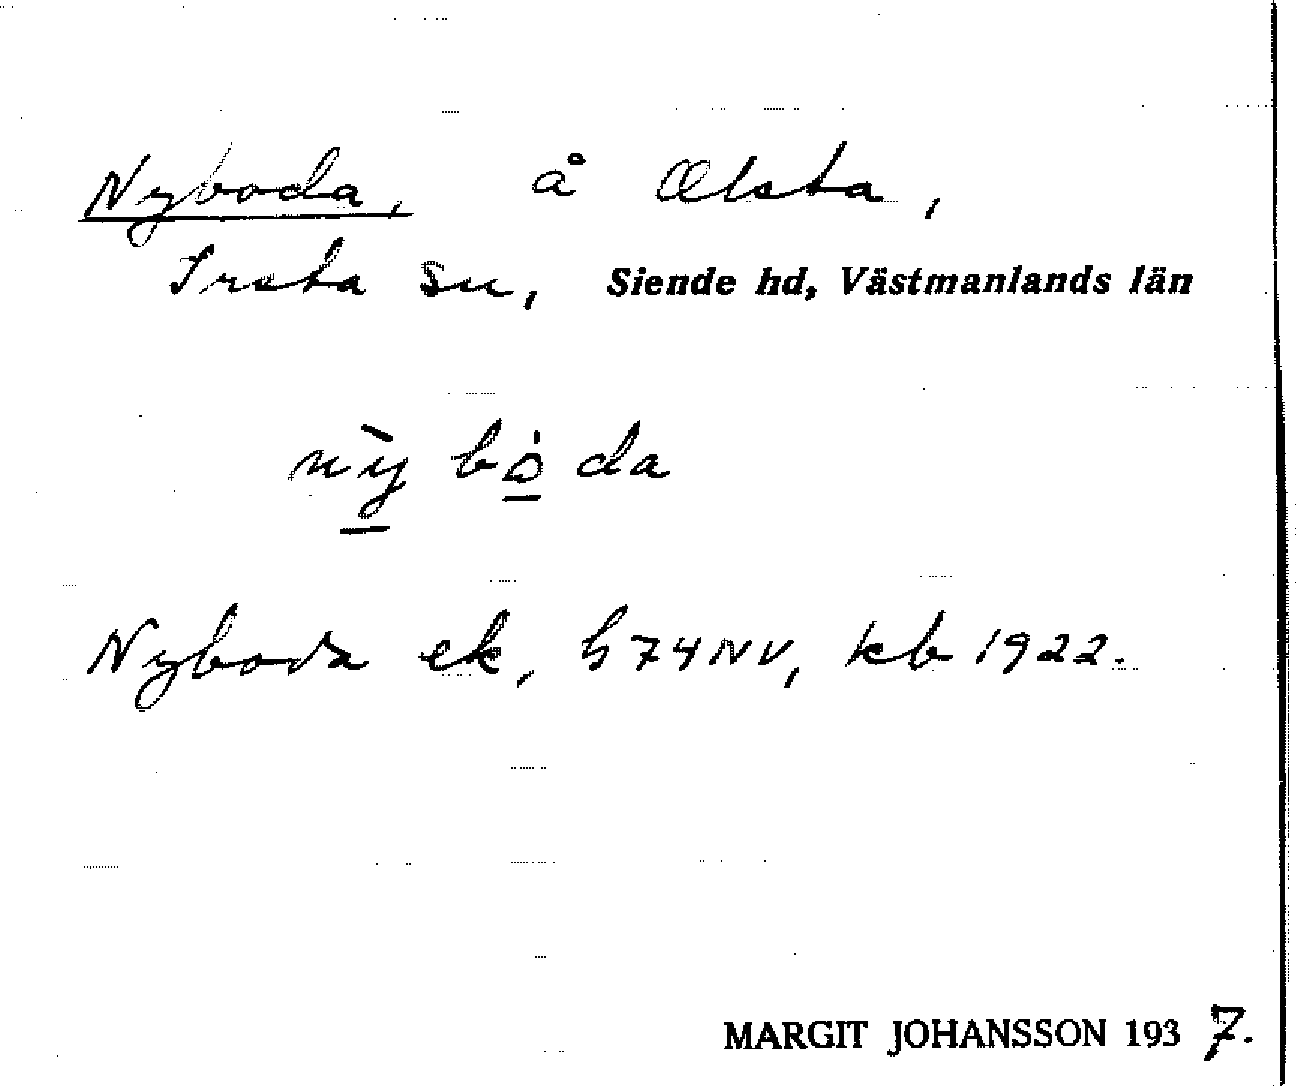 Nyboda, å Ælsta,
Irsta sn, Siende hd, Västmanlands län
nỳ bȯ da
Nyboda ek, h74NV, kb 1922.
MARGIT JOHANSSON 1937.